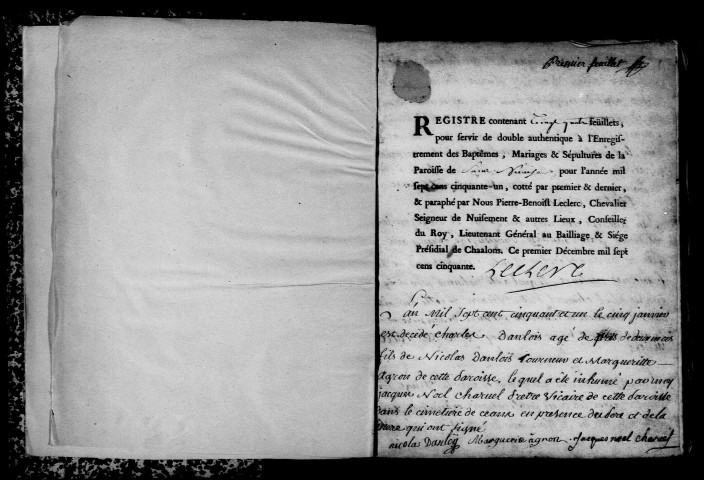 Premier feuillet
REGISTRE contenant vingt quatre feuillets,
pour servir de double authentique à l'Enregis-
trement des Baptêmes, Mariages & Sépultures de la
Paroisse de pour l'année mil
sept cens cinquante-un, cotté par premier & dernier,
& paraphé par Nous Pierre-Benoist Leclerc, Chevalier
Seigneur de Nuisement & autres Lieux, Conseiller
du Roy, Lieutenant Général au Bailliage & Siége
Présidial de Chaalons. Ce premier Décembre mil sept
cens cinquante. Leclerc
L'an Mil Sept cent cinquant et un le cinq janvier
est decédé charles Danlois agé de
fils de Nicolas Danlois tourneur et Margueritte
Agron de cette paroisse, lequel a été inhumé par moy
jacques Noel charuel pretre Vicaire de cette paroisse
dans le cimetiere de ceans en presence du pere et de la
mere qui ont signé
nicolas Danloy Marguerie agnon Jacques noel charuel